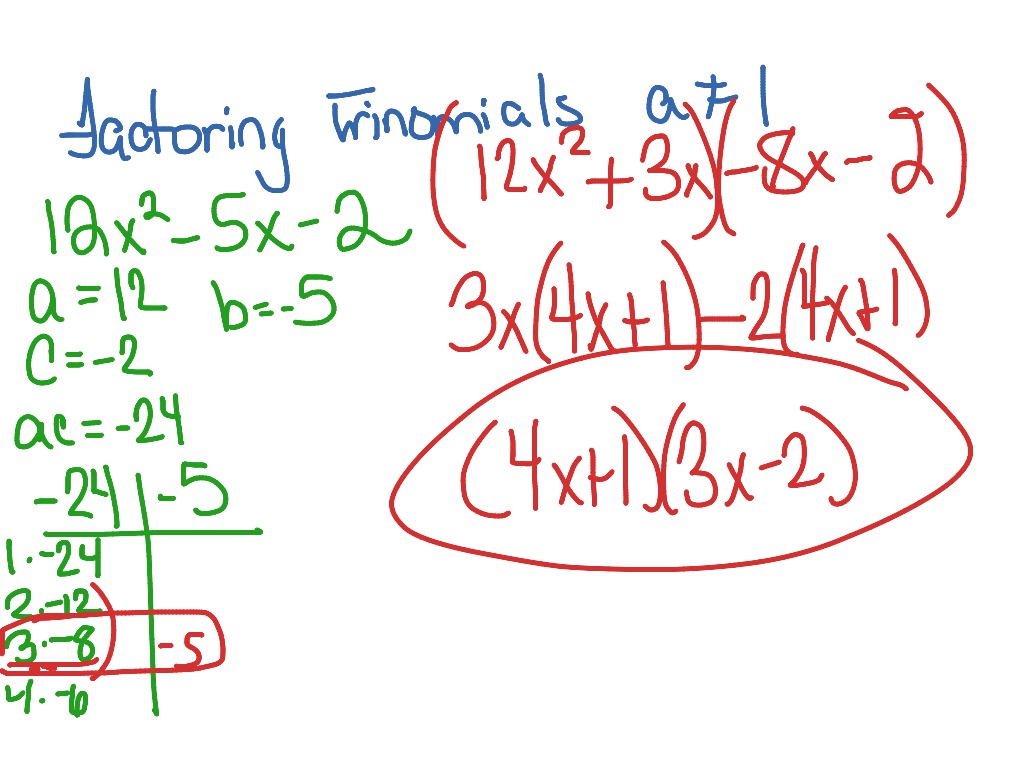 Factoring Trinomials a≠1
12x² - 5x - 2
a = 12 b = -5
c = -2
ac = -24
-24 | -5
1 · -24
2 · -12
3 · -8 | -5
4 · -6
(12x² + 3x)(-8x - 2)
3x(4x+1) - 2(4x+1)
(4x+1)(3x-2)